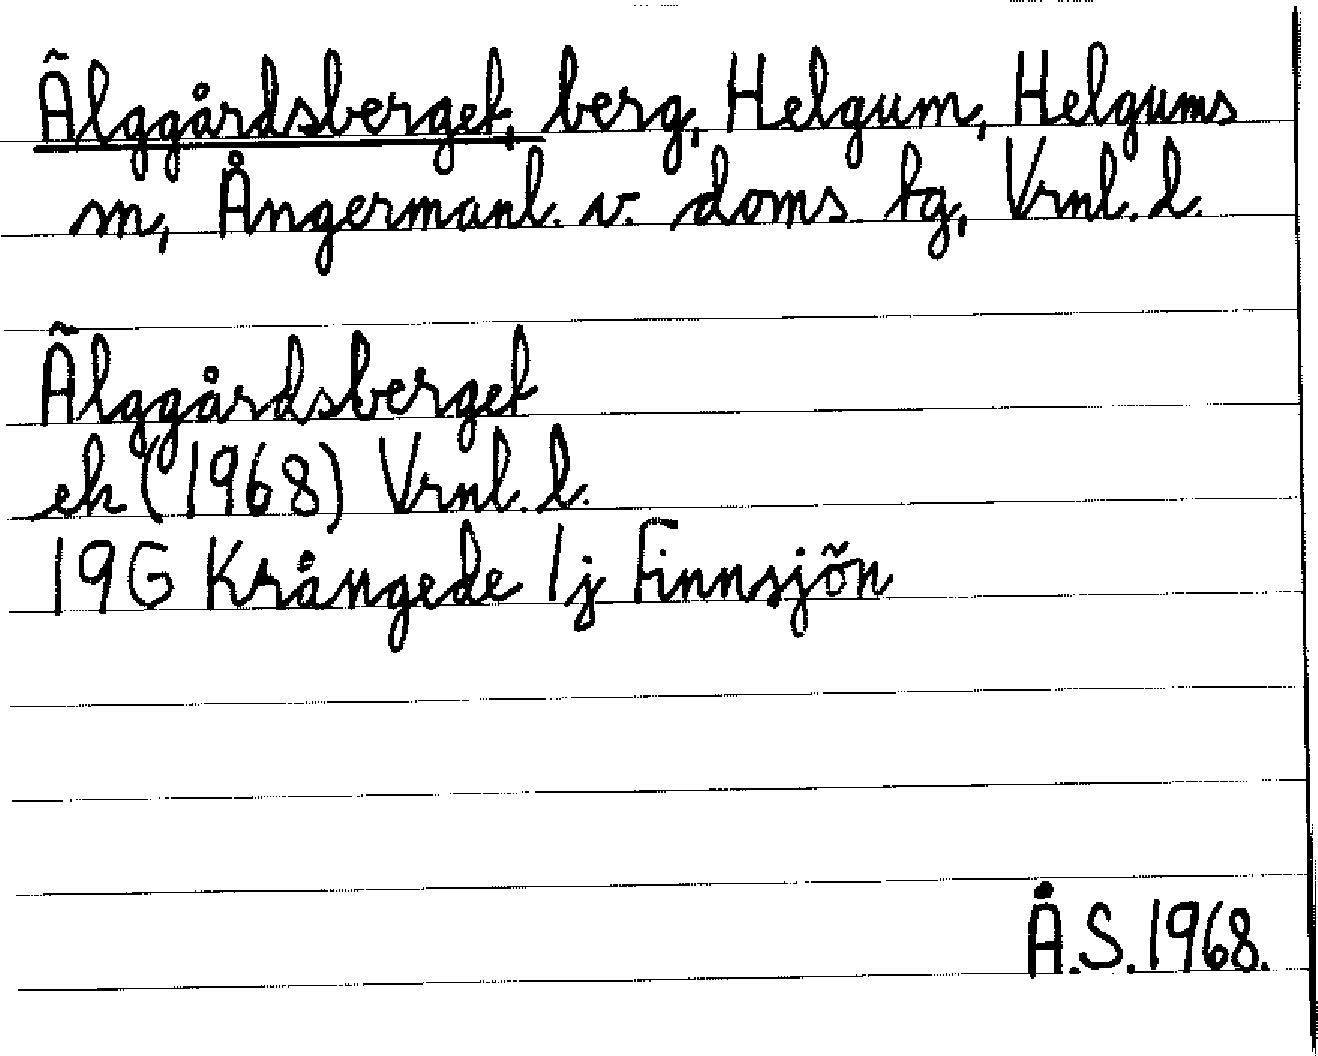 Älggårdsberget, berg, Helgum, Helgums
m, Ångermanl. v. doms. tg, Vrnl. l.
Älggårdsberget
ek (1968) Vrnl. l.
19G Krångede 1j Finnsjön
Å.S. 1968.